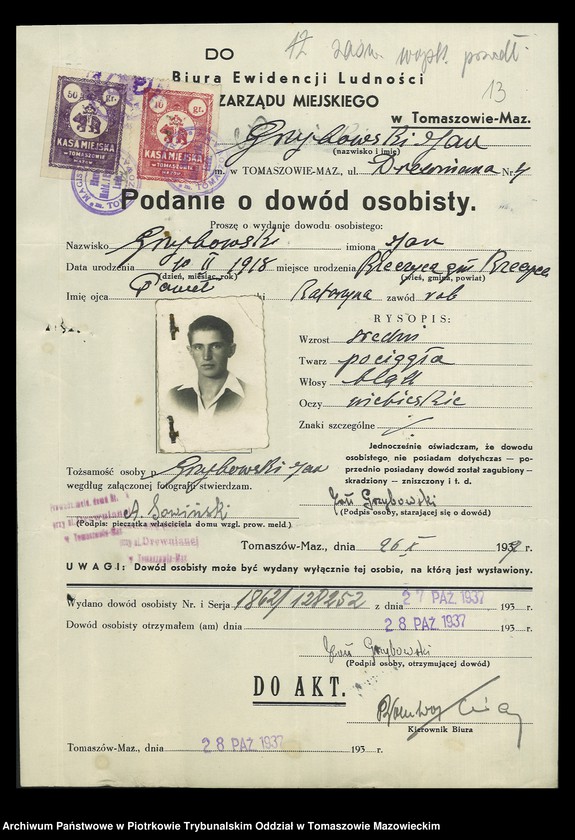 DO
12 zaśw. wojsk. powdł.
13
Biura Ewidencji Ludności
ZARZĄDU MIEJSKIEGO
w Tomaszowie-Maz.
50 gr.
10 gr.
KASA MIEJSKA
W TOMASZOWIE
KASA MIEJSKA
W TOMASZOWIE
Grzybowski Jan
(nazwisko i imię)
m. w TOMASZOWIE-MAZ., ul. Drewniana Nr. 4
Podanie o dowód osobisty.
Proszę o wydanie dowodu osobistego:
Nazwisko Grzybowski imiona Jan
Data urodzenia 10 II 1918 miejsce urodzenia Brzezyca gm Brzezyca
(dzień, miesiąc, rok) (wieś, gmina, powiat)
Imię ojca Paweł ki Katarzyna zawód rob
RYSOPIS:
Wzrost średni
Twarz pociągła
Włosy bląd
Oczy niebieskie
Znaki szczególne
Jednocześnie oświadczam, że dowodu
osobistego, nie posiadam dotychczas — po-
przednio posiadany dowód został zagubiony-
skradziony — zniszczony i t. d.
Tożsamość osoby p. Grzybowski Jan
według załączonej fotografii stwierdzam.
A. Sowiński
Jan Grzybowski
(Podpis: pieczątka właściciela domu wzgl. prow. meld.)
(Podpis osoby, starającej się o dowód)
Drewnianej
w Tomaszowie-Maz.
Tomaszów-Maz., dnia 26 X 1937 r.
UWAGI: Dowód osobisty może być wydany wyłącznie tej osobie, na którą jest wystawiony.
Wydano dowód osobisty Nr. i Serja 1862/128252 z dnia 27 PAŹ. 1937 193 r.
Dowód osobisty otrzymałem (am) dnia 28 PAŹ 1937 193 r.
Jan Grzybowski
(Podpis osoby, otrzymującej dowód)
DO AKT.
Kierownik Biura
Tomaszów-Maz., dnia 28 PAŹ 1937 193 r.
Archiwum Państwowe w Piotrkowie Trybunalskim Oddział w Tomaszowie Mazowieckim